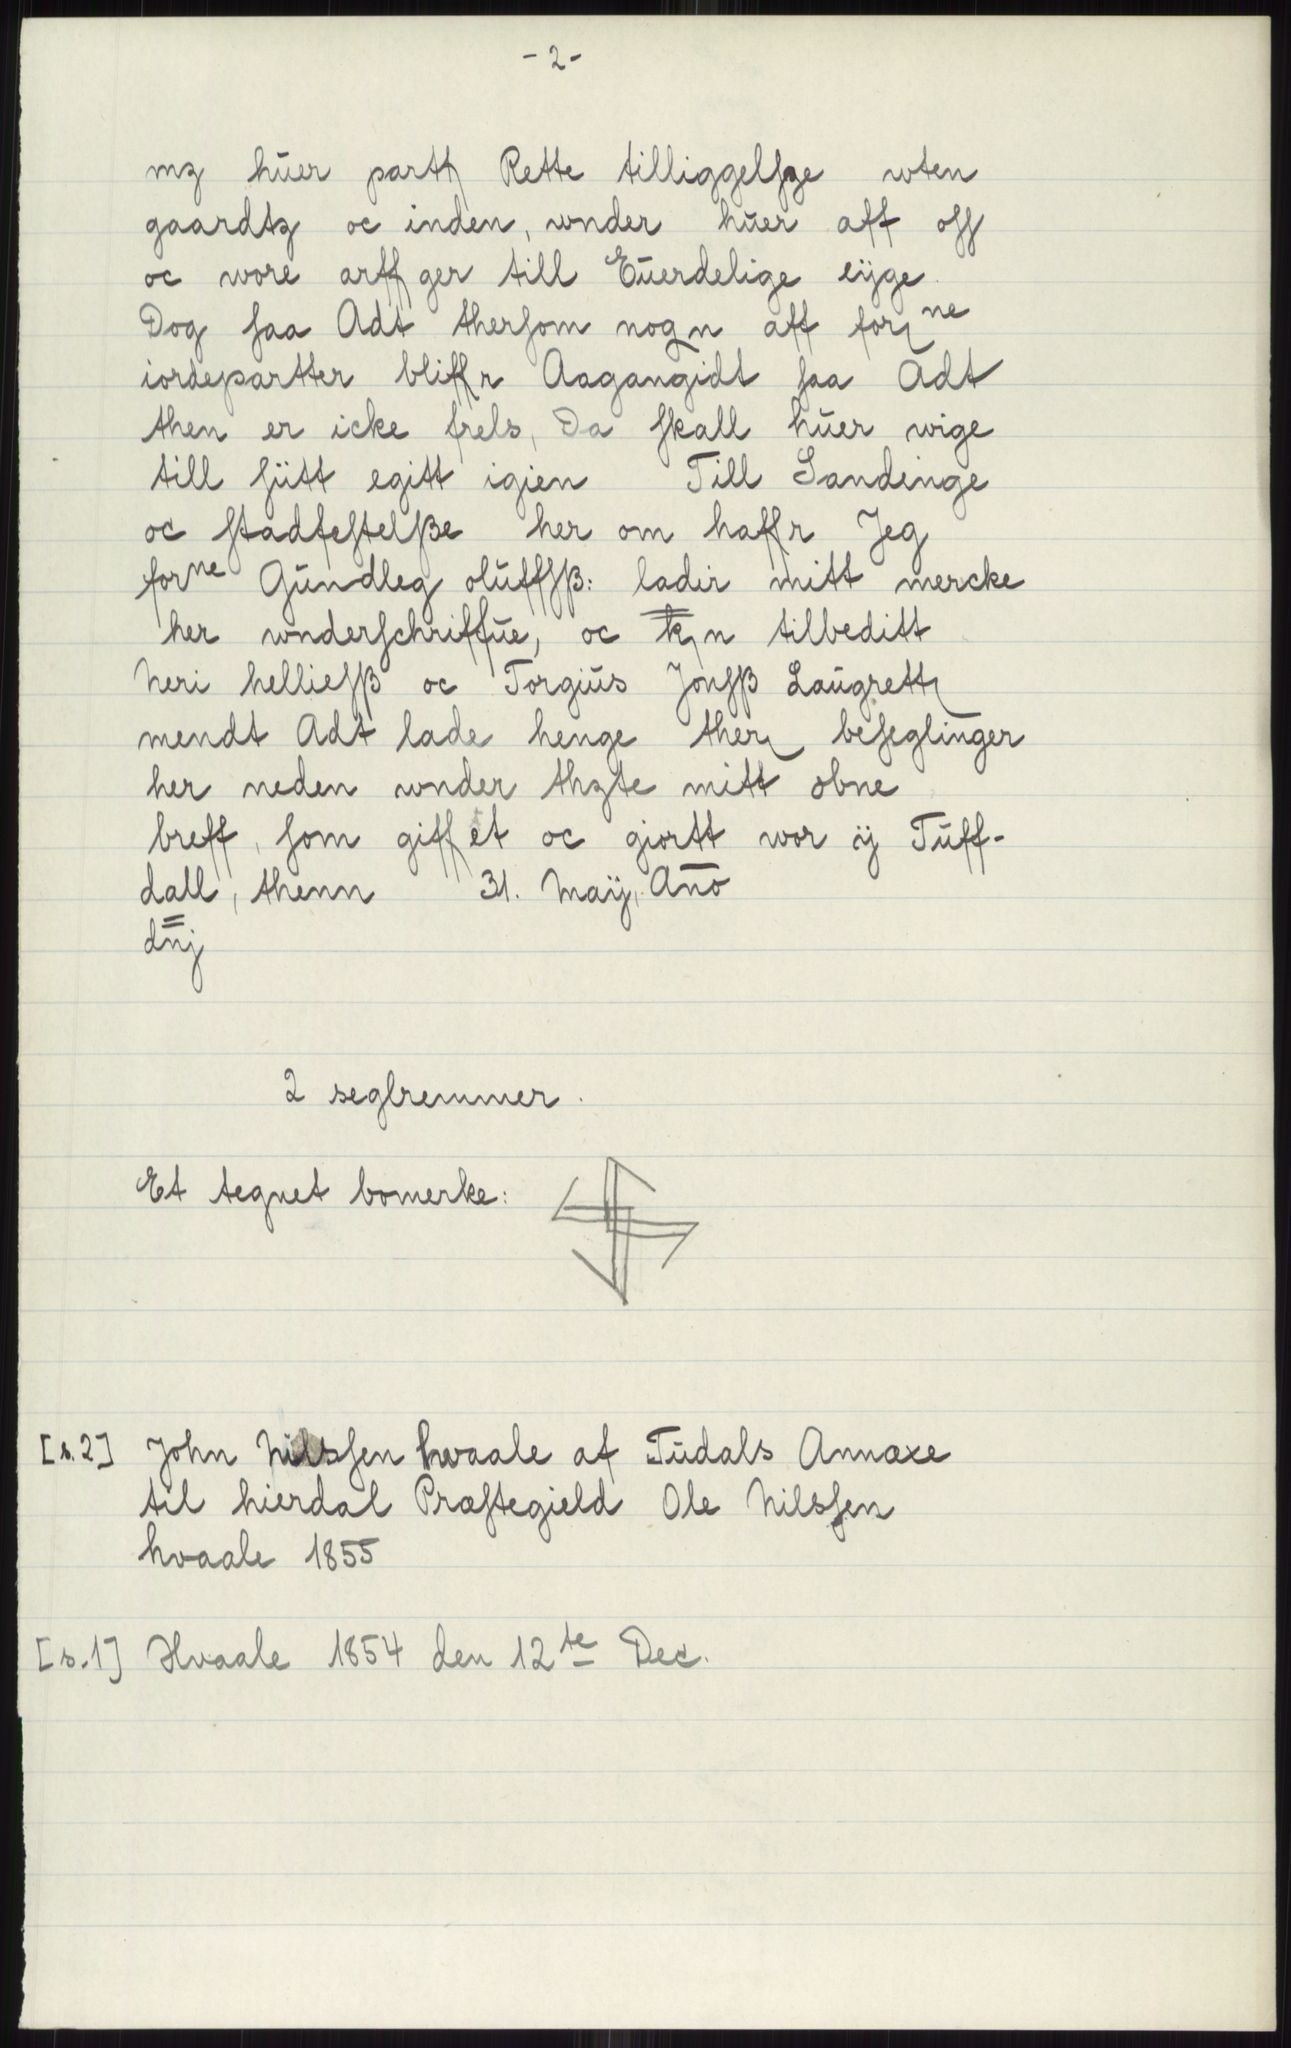 - 2 -
mz huer partt Rette tilliggelsze wten
gaardtz oc inden, wnder huer aff oss
oc wore arffger till Euerdelige eyge
Dog saa Adt thersom nogn aff forne
iordepartter bliffr Aagangidt saa Adt
then er icke frels, Da skall huer wige
till sütt egitt igien Till Sandinge
oc stadfestelße her om haffr Jeg
forne Gundleg oluffsß: ladir mitt mercke
her wnderschriffue, oc kn tilbeditt
Neri helliesß oc Torgius Jonsß Laugrett
mendt Adt lade henge ther besegling̅er
her neden wnder thzte mitt obne
breff, som giffet oc giortt wor ÿ Tuff-
dall, thenn 31. Maÿ, Ano
dnj
2 seglremmer.
Et tegnet bomerke:
[s.2] John Nilssen hvaale af Tudals Annexe
til hierdal Præstegield Ole Nilssen
hvaale 1855
[s.1] Hvaale 1854 den 12te Dec.